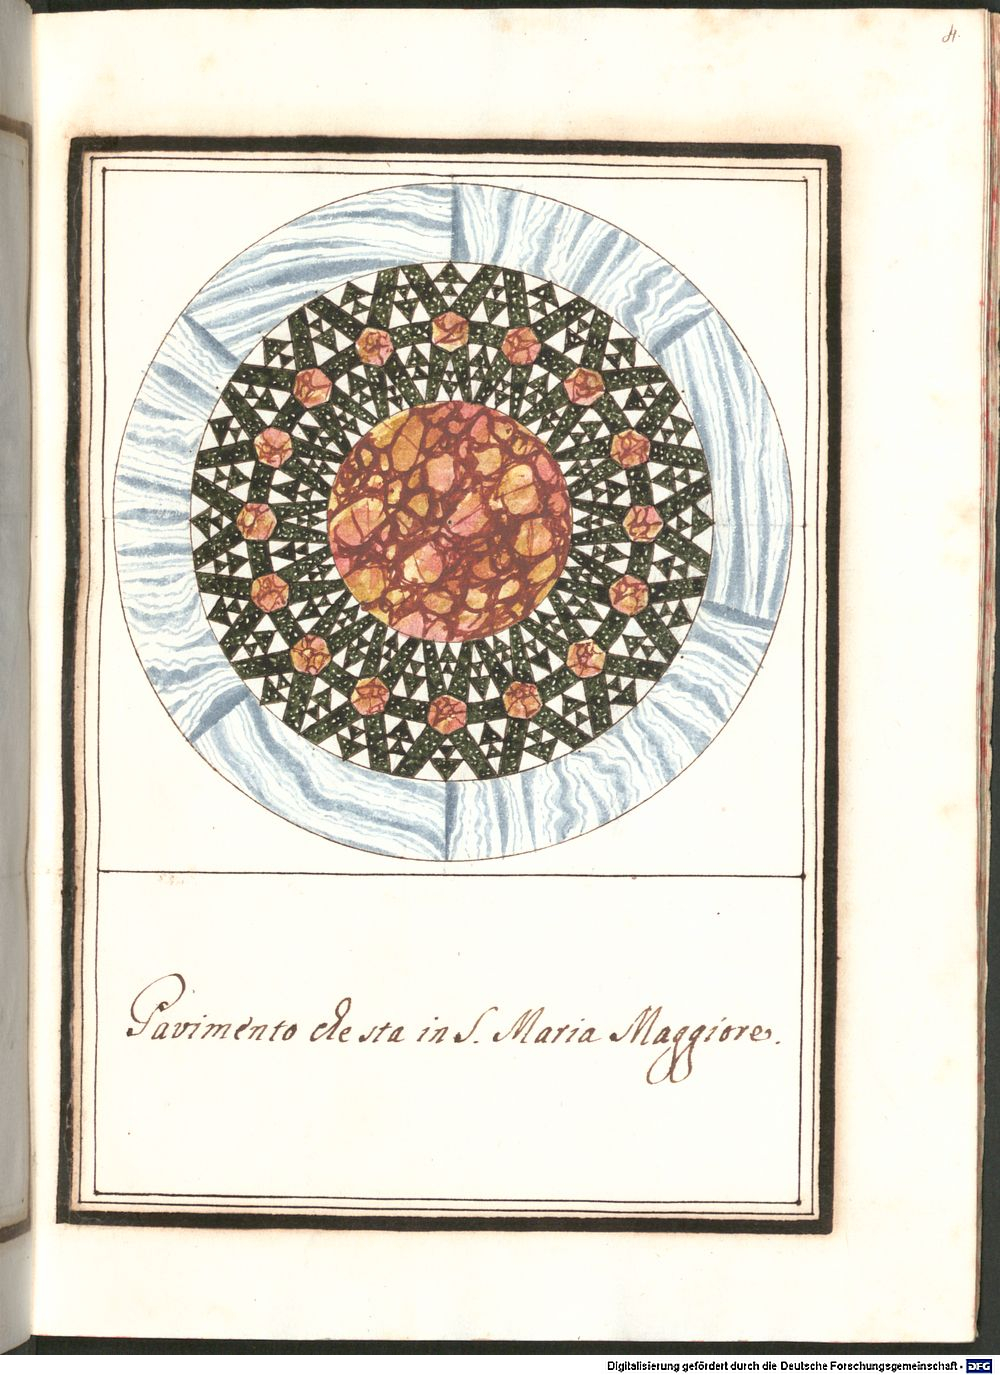 4.
Pavimento che sta in S. Maria Maggiore.
Digitalisierung gefördert durch die Deutsche Forschungsgemeinschaft - DFG